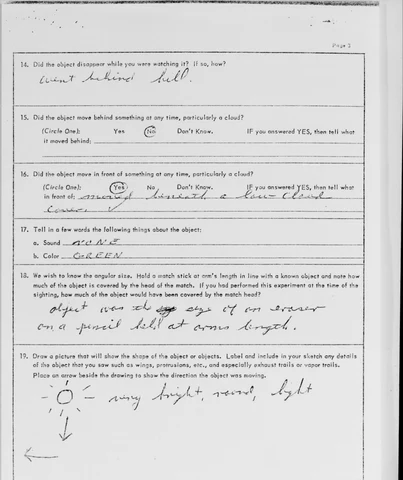 Page 3
14. Did the object disappear while you were watching it? If so, how?
went behind hill.
15. Did the object move behind something at any time, particularly a cloud?
(Circle One): Yes No Don't Know. IF you answered YES, then tell what
it moved behind:
16. Did the object move in front of something at any time, particularly a cloud?
(Circle One): Yes No Don't Know. IF you answered YES, then tell what
in front of: moved beneath a low cloud
cover.
17. Tell in a few words the following things about the object:
a. Sound NONE
b. Color GREEN
18. We wish to know the angular size. Hold a match stick at arm's length in line with a known object and note how
much of the object is covered by the head of the match. If you had performed this experiment at the time of the
sighting, how much of the object would have been covered by the match head?
object was the size of an eraser
on a pencil held at arms length.
19. Draw a picture that will show the shape of the object or objects. Label and include in your sketch any details
of the object that you saw such as wings, protrusions, etc., and especially exhaust trails or vapor trails.
Place an arrow beside the drawing to show the direction the object was moving.
very bright, round, light